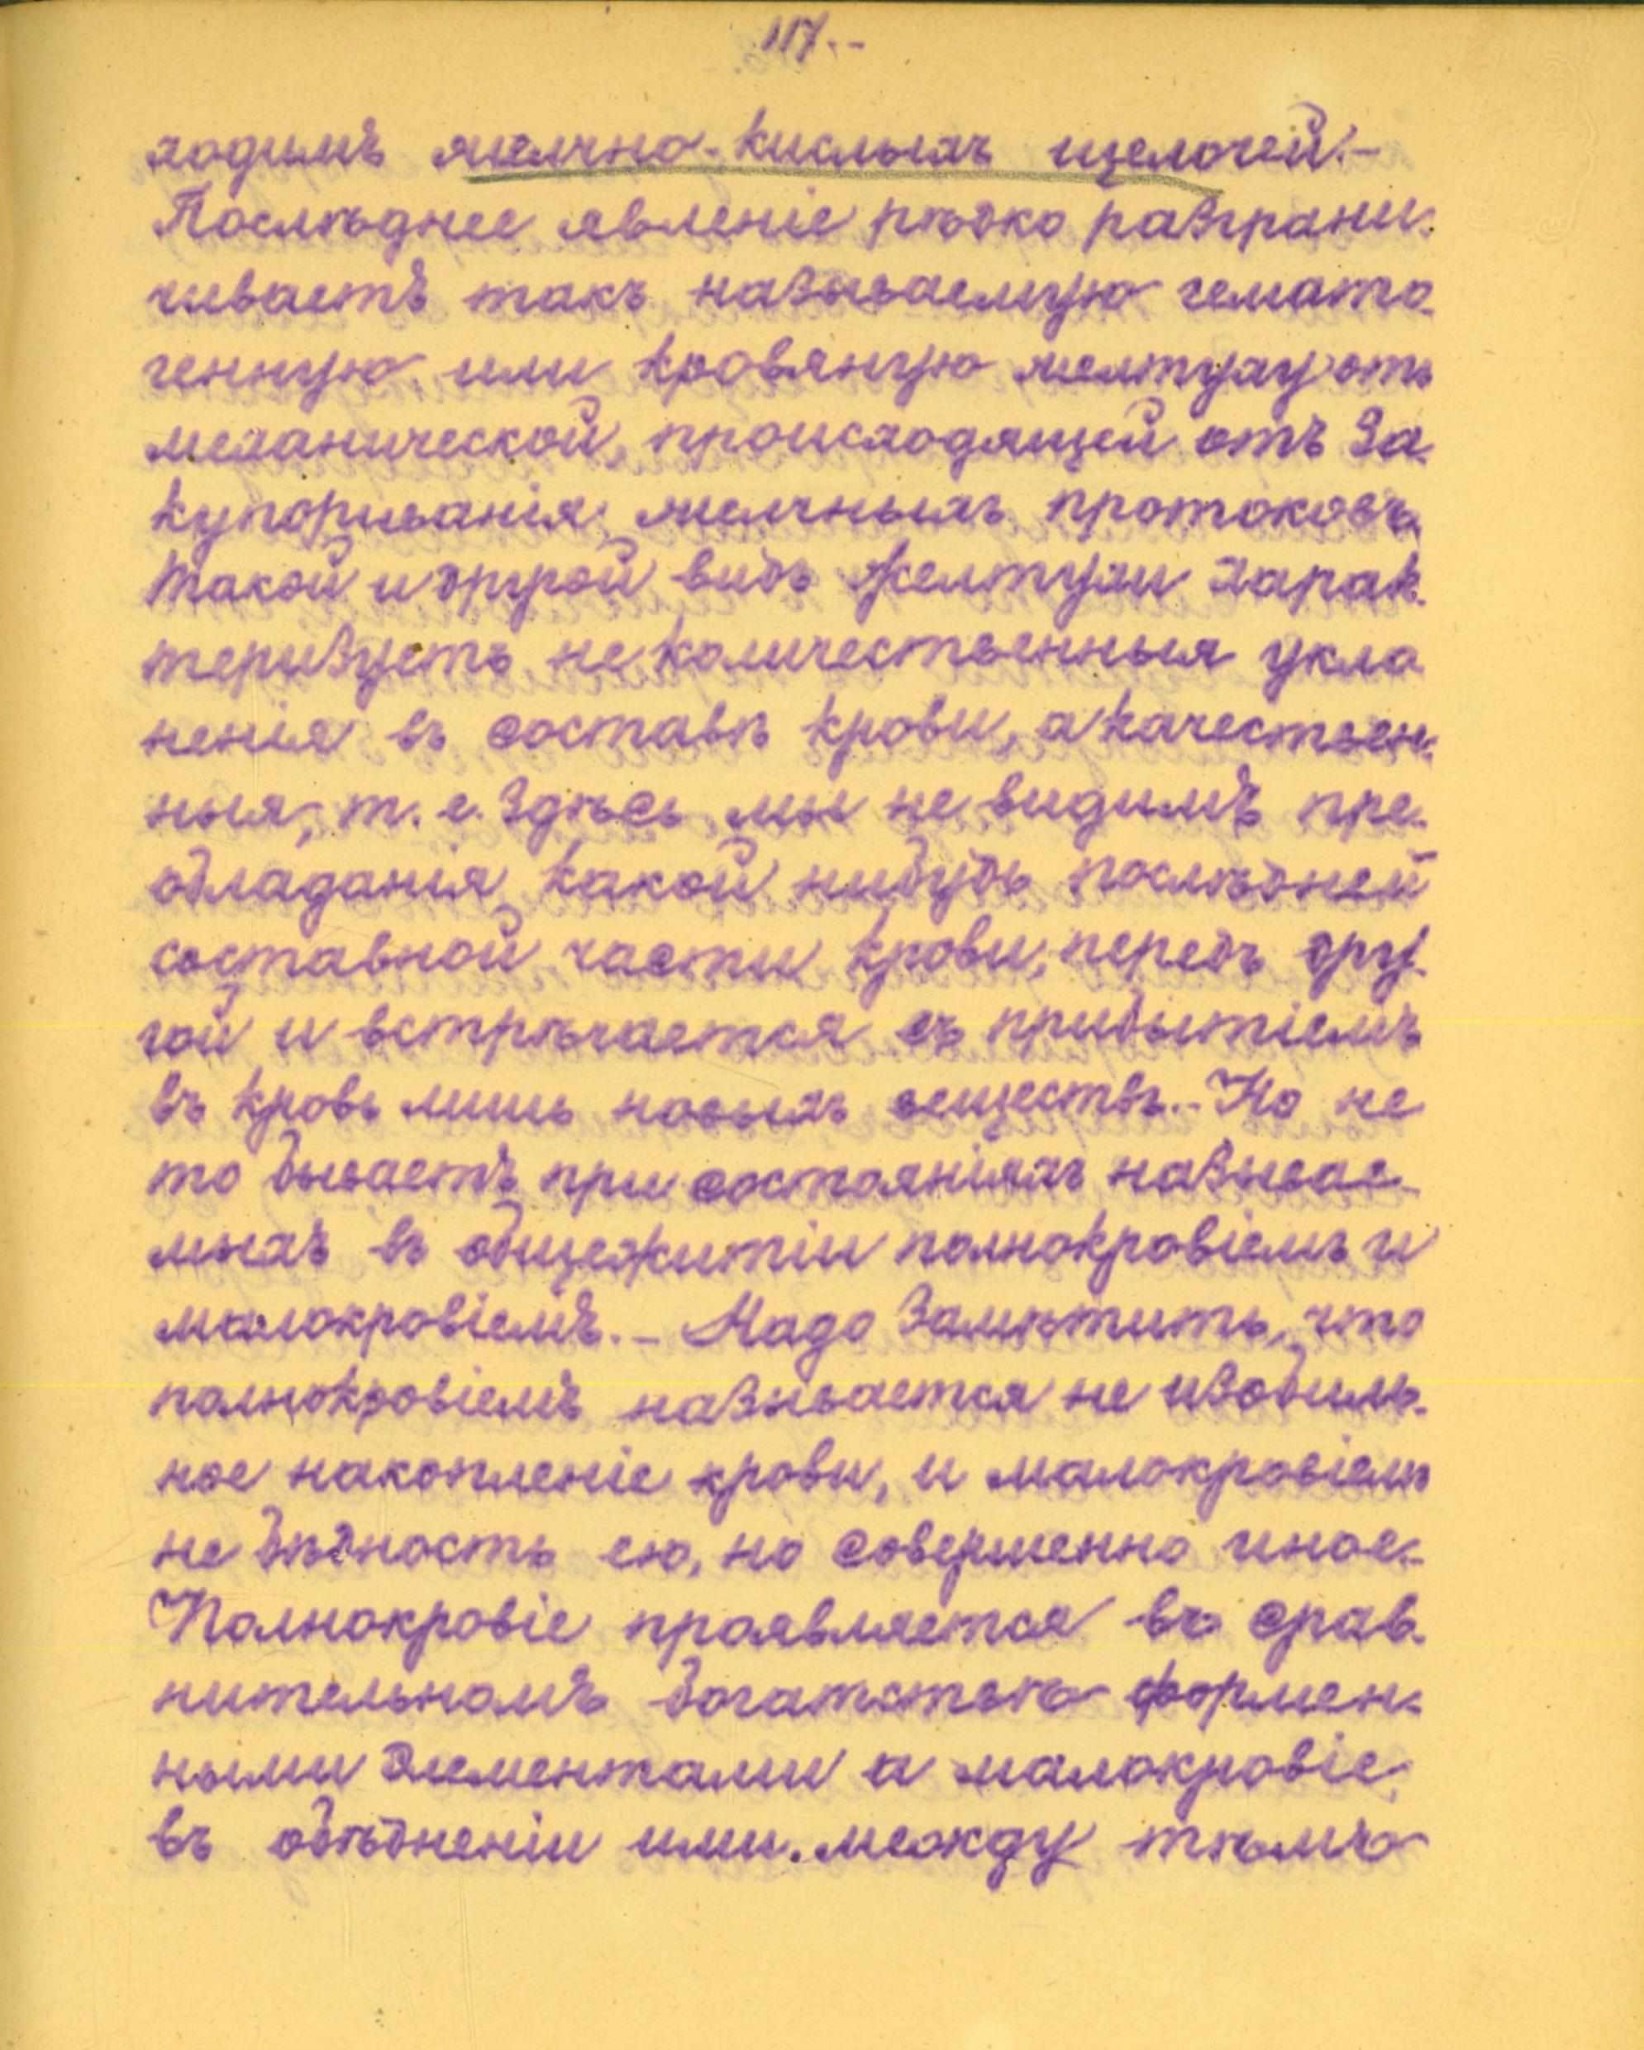 117.--
ходимъ желчно-кислыхъ щелочей.-
Послѣднее явленіе рѣзко разграни-
чиваетъ такъ называемую гемато-
генную или кровяную желтуху отъ
механической, происходящей отъ за-
купориванія желчныхъ протоковъ.
Такой и другой видъ желтухи харак-
теризуетъ не количественныя укло
ненія въ составѣ крови, а качествен-
ныя, т. е. здѣсь мы не видимъ пре-
обладанія какой нибудь послѣдней
составной части крови, передъ дру-
гой и встрѣчается съ прибытіемъ
въ кровь лишь новыхъ веществъ.- Но не
то бываетъ при состояніяхъ называе-
мыхъ въ общежитіи полнокровіемъ и
малокровіемъ.- Надо замѣтить, что
полнокровіемъ называется не изобиль-
ное накопленіе крови, и малокровіемъ
не бѣдность ею, но совершенно иное.-
Полнокровіе проявляется въ срав-
нительномъ богатствѣ формен-
ными элементами а малокровіе
въ обѣдненіи ими. между тѣмъ